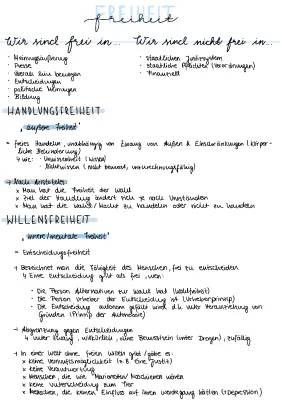 FREIHEIT
freiheit
Wir sind frei in... Wir sind nicht frei in...
• Meinungsäußerung • staatlichem Justizsystem
• Presse • staatliche Pflichten (Verordnungen)
• überall hin bewegen • Finanziell
• Entscheidungen
• politische Meinungen
• Bildung
HANDLUNGSFREIHEIT
"äußere Freiheit"
= freies Handeln, unabhängig von Zwang von Außen & Einschränkungen (körper-
liche Behinderung)
↳ wie: - Unwissenheit (Kinder)
- Nichtwissen (nicht bewusst, unzurechnungsfähig)
→ Nach Aristoteles
x Man hat die Freiheit der Wahl
x Ziel der Handlung ändert sich je nach Umständen
x Man hat die Wahl/Macht zu handeln oder nicht zu handeln
WILLENSFREIHEIT
"innere/mentale Freiheit"
= Entscheidungsfreiheit
→ Bezeichnet man die Fähigkeit des Menschen, frei zu entscheiden
↳ Eine Entscheidung gilt als frei, wenn:
- Die Person Alternativen zur Wahl hat (Wahlfreiheit)
- Die Person Urheber der Entscheidung ist (Urheberprinzip)
- Die Entscheidung autonom gefällt wird d.h. unter
Gründen (Prinzip der Autonomie)
→ Abgrenzung gegen Entscheidungen
↳ unter Zwang, willkürlich, ohne Bewusstsein (unter Drogen), zufällig
→ In einer Welt ohne freien Willen gibt/gäbe es:
x keine Vernunftmöglichkeit (z.B. eine Justiz)
x keine Verantwortung
x Menschen, die wie Marionetten/Maschinen wären
x keine Unterscheidung zum Tier
x Menschen, die keinen Einfluss auf ihren Werdegang hätten (→Depression)